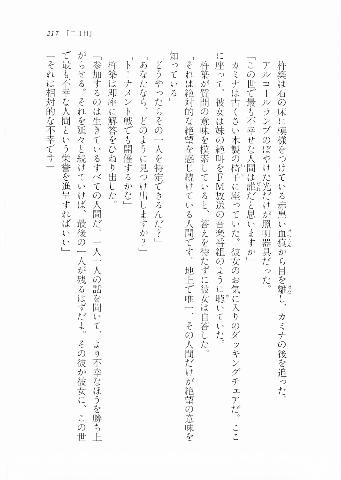 217 「二十日」
杵築は石の床に模様をつけている赤黒い血痕から目を離し、カミナの後を追った。
アルコールランプのぼやけた光だけが照明器具だった。
「この世で最も不幸せな人間は誰だと思いますか」
カミナは古くさい木製の椅子に座っていた。彼女のお気に入りのダッキングチェアだ。ここ
に座って、彼女は妹の絶叫をFM放送の音楽番組のように聴いていた。
杵築が質問の意味を模索していると、答えを待たずに彼女は自答した。
「それは絶対的な絶望を感じ続けている人間です。地上で唯一、その人間だけが絶望の意味を
知っている」
「どうやったらその一人を特定できるんだ?」
「あなたなら、どのように見つけ出しますか?」
「トーナメント戦でも開催するかな」
杵築は即座に解答をひねり出した。
「参加するのは生きているすべての人間だ。一人一人の話を聞いて、より不幸なほうを勝ち上
がらせる。それを延々と続けていけば、最後の一人が残るはずだよ。その彼か彼女に、この世
で最も不幸な人間という栄誉を進呈すればいい」
「それは相対的な不幸です」